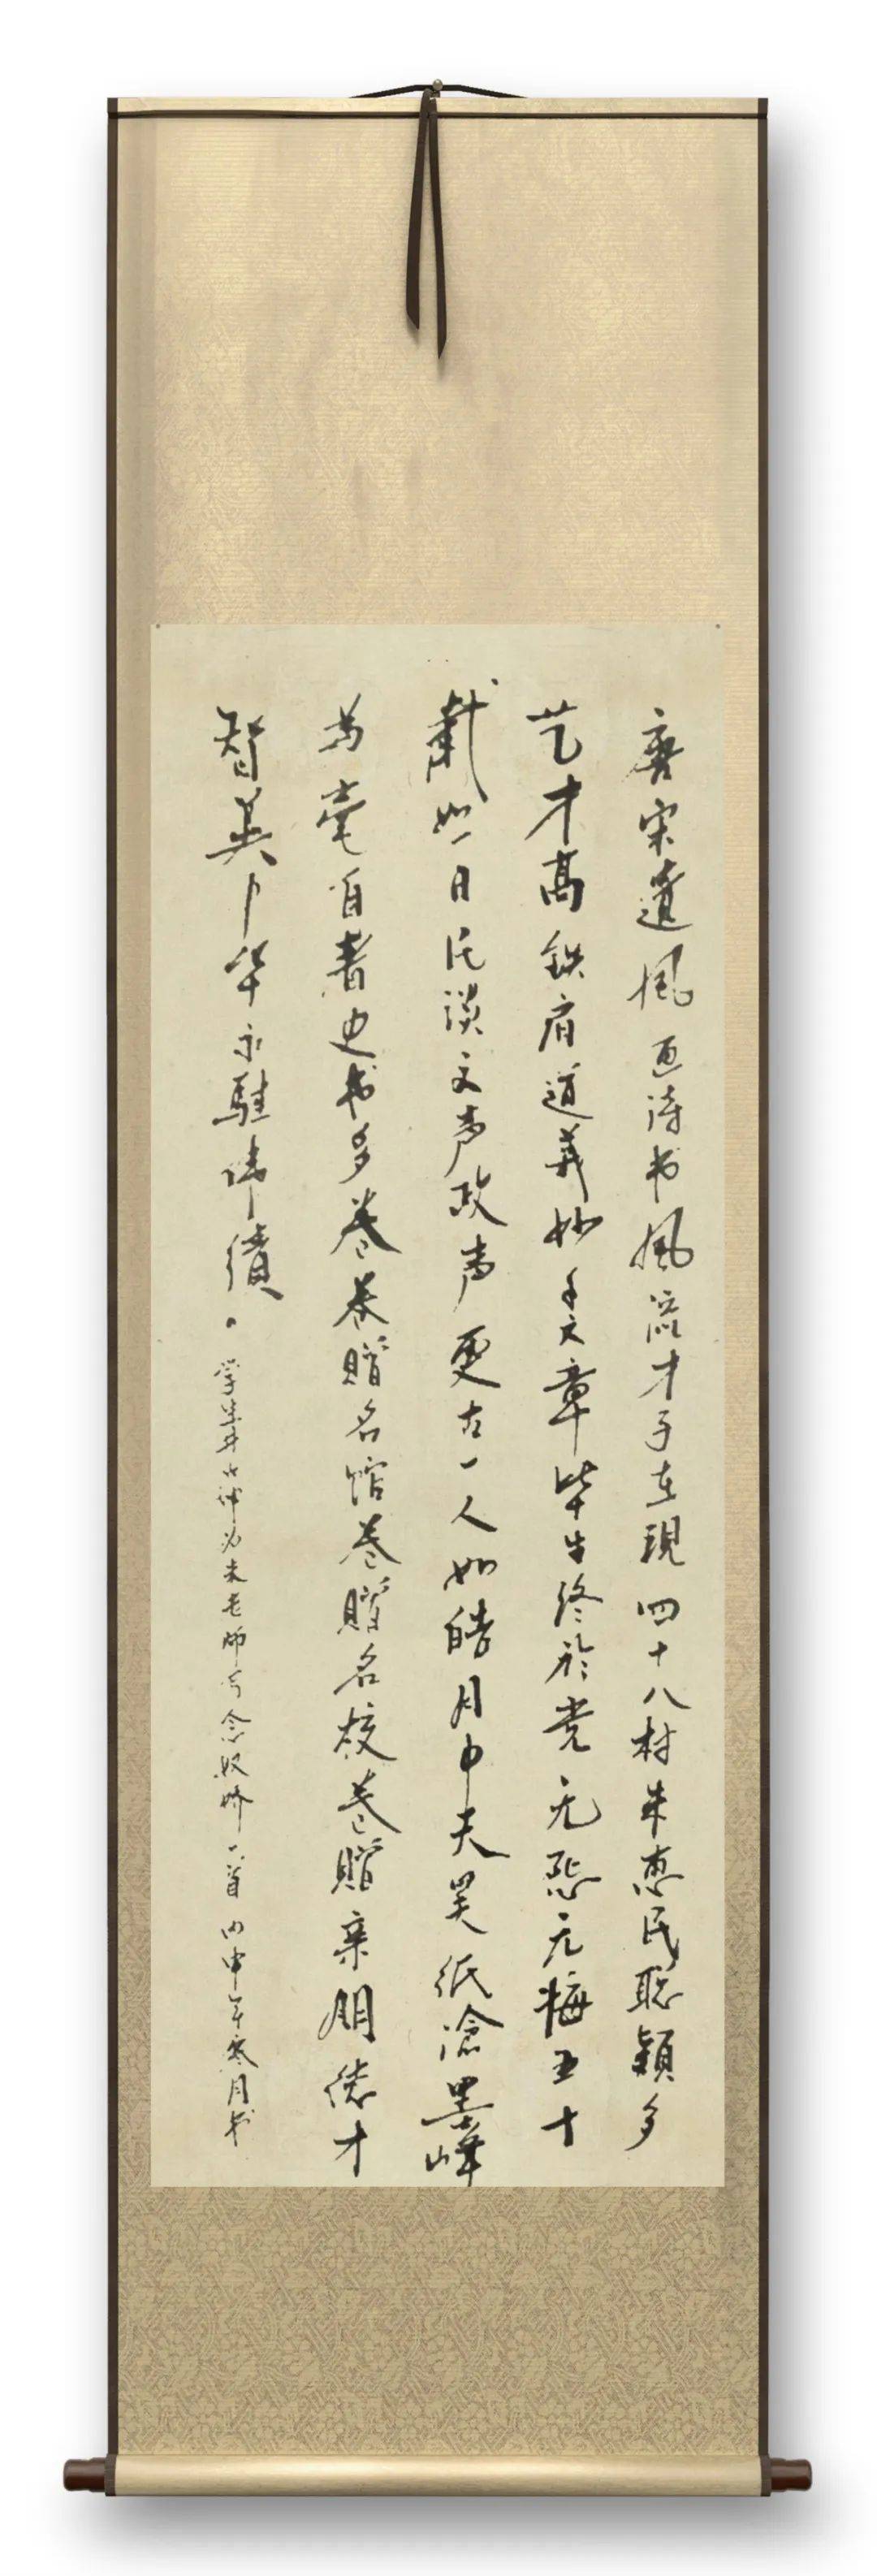 唐宋遗风画诗书风流才子在现四十八村朱惠民聪颖多
艺才高铁肩道义妙手文章毕生终於党无怨无悔五十
载如一日民谟文声政声更古一人如皓月中天昊纸沧墨峰
为毫自著史书多卷卷赠名馆卷赠名校卷赠亲朋德才
智美中华永驻伟绩
为朱老师写念奴娇一首丙申年寒月书